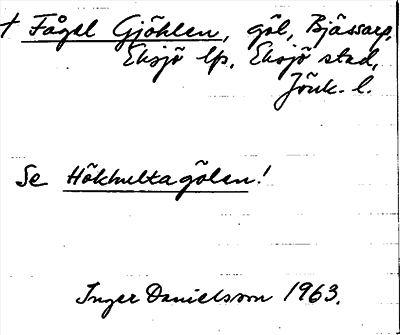 † Fågel Gjöhlen, göl, Bjässarp,
Eksjö lfs, Eksjö stad,
Jönk. l.
Se Hökhultagölen!
Inger Danielsson 1963.